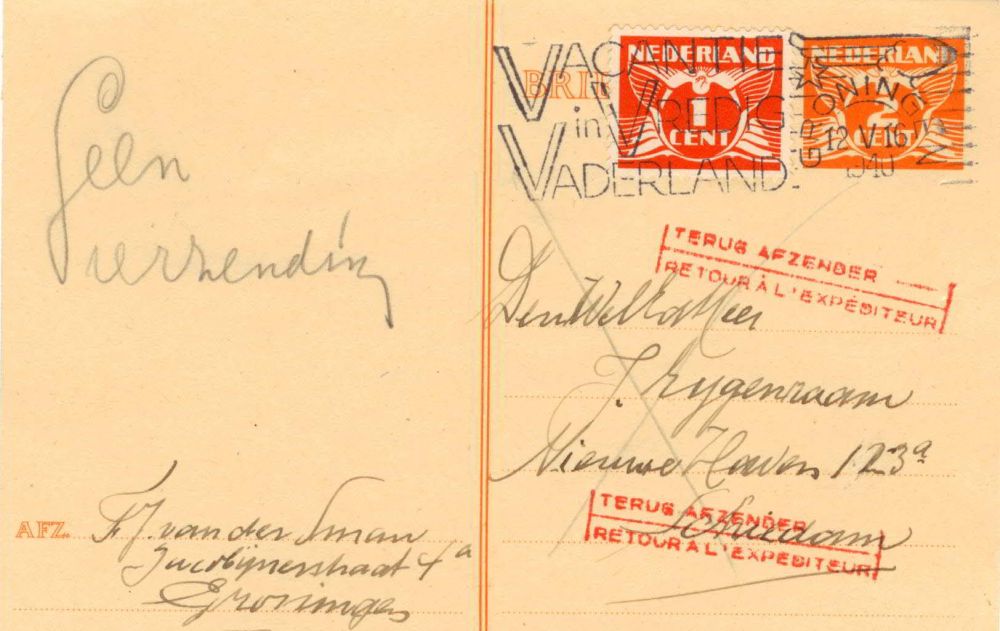 Geen
verzending
AFZ. F.J. van der Sman
Jacobijnerstraat 4a
Groningen
VACANTIE
in VREDIG
VADERLAND.
BRIE
NEDERLAND
1
CENT
NEDERLAND
2
CENT
GRONINGEN
12 V 16
1940
TERUG AFZENDER
RETOUR À L'EXPÉDITEUR
Den WelEd. Heer
J. Eygenraam
Nieuwe Haven 123a
Schiedam
TERUG AFZENDER
RETOUR À L'EXPÉDITEUR